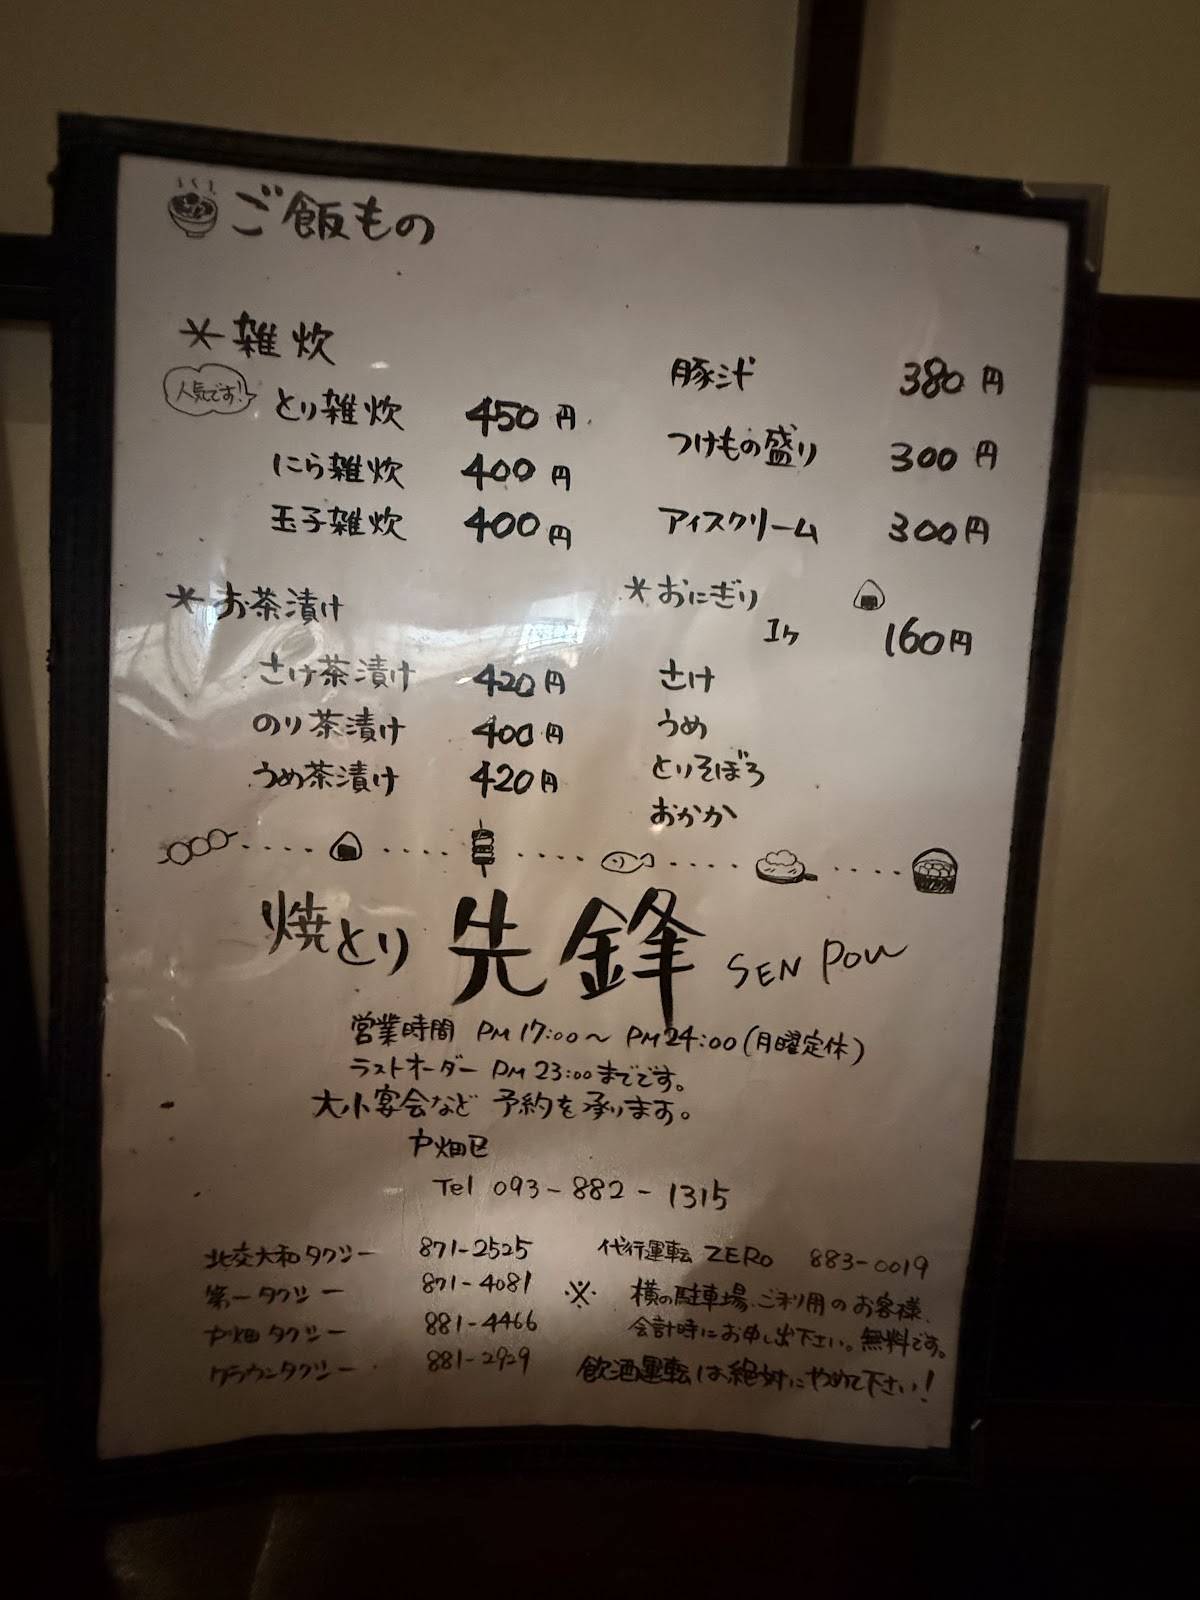 ご飯もの
*雑炊
人気です!
とり雑炊 450円
にら雑炊 400円
玉子雑炊 400円
豚汁 380円
つけもの盛り 300円
アイスクリーム 300円
*お茶漬け
さけ茶漬け 420円
のり茶漬け 400円
うめ茶漬け 420円
*おにぎり
1ケ 160円
さけ
うめ
とりそぼろ
おかか
焼とり 先鋒 SEN POU
営業時間 PM17:00〜PM24:00(月曜定休)
ラストオーダー PM23:00までです。
大小宴会など 予約を承ります。
戸畑区
Tel 093-882-1315
北交大和タクシー 871-2525
第一タクシー 871-4081
戸畑タクシー 881-4466
クラウンタクシー 881-2929
代行運転 ZERO 883-0019
※ 横の駐車場、ご利用のお客様、
会計時にお申し出下さい。無料です。
飲酒運転は絶対にやめて下さい!